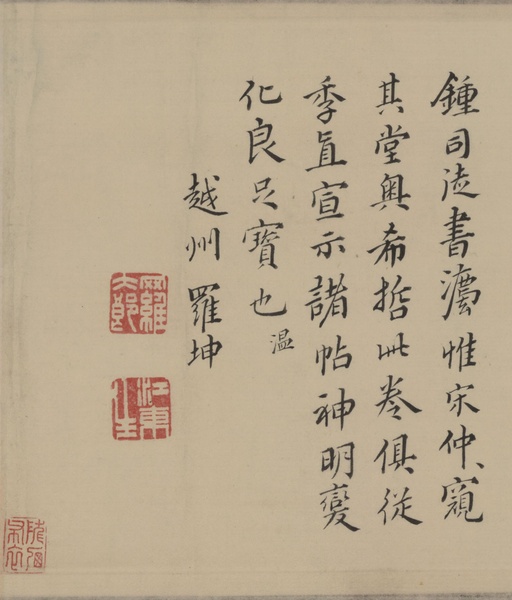 鍾司徒書灋惟宋仲、窺
其堂奧希哲此卷俱從
季直宣示諸帖神明變
化良足寶也
溫
越州羅坤
羅大郎